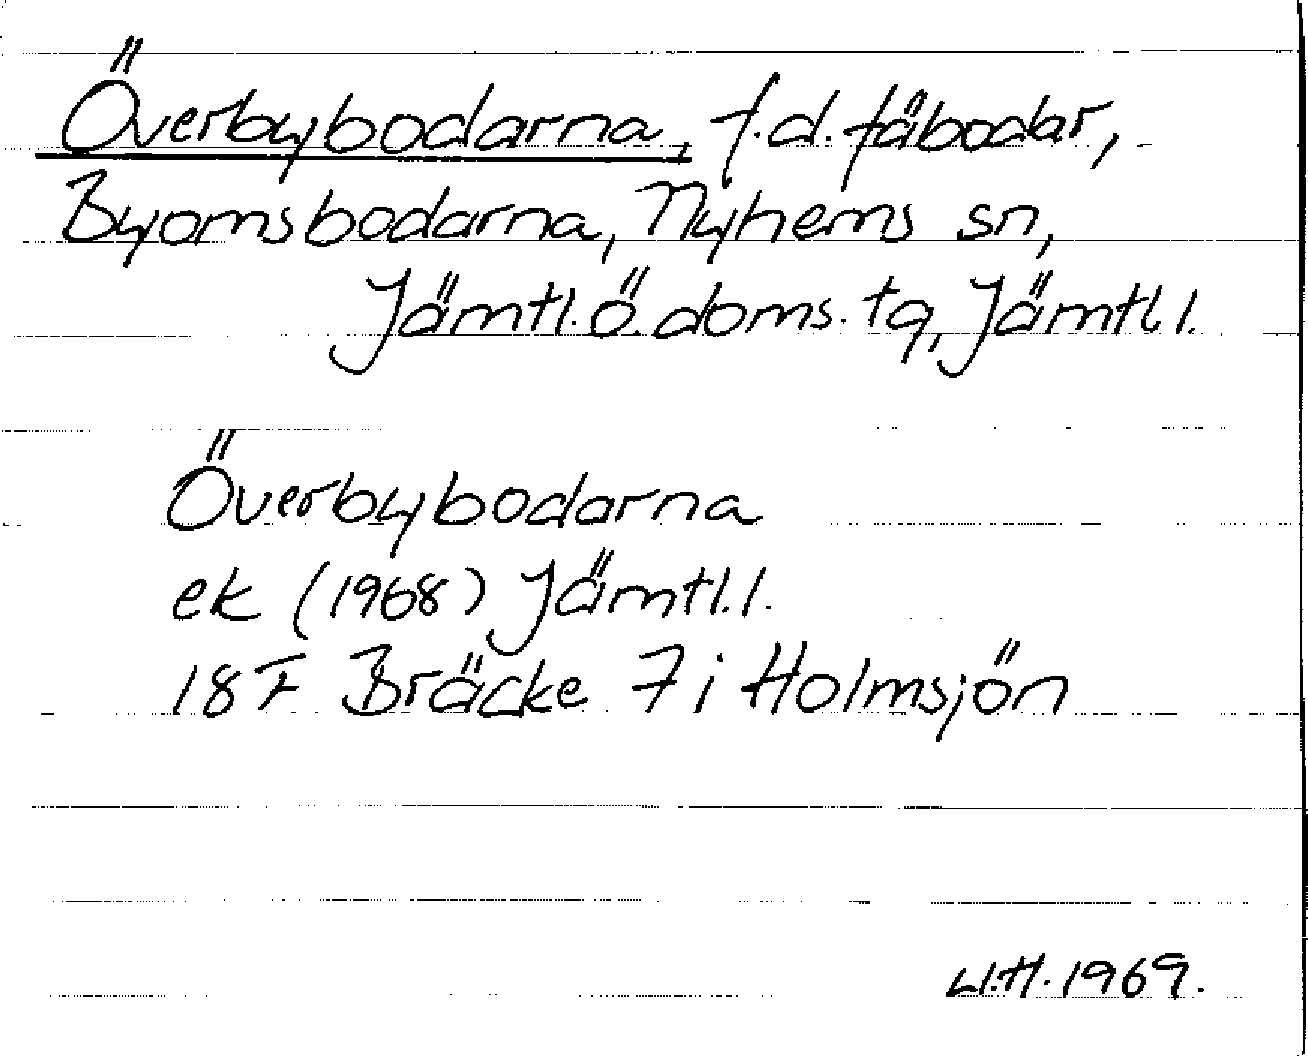 Överbybodarna, f.d. fäbodar,
Byomsbodarna, Nyhems sn,
Jämtl. ö. doms. tg, Jämtl. l.
Överbybodarna
ek (1968) Jämtl. l.
18 F Bräcke 7 i Holmsjön
1969.